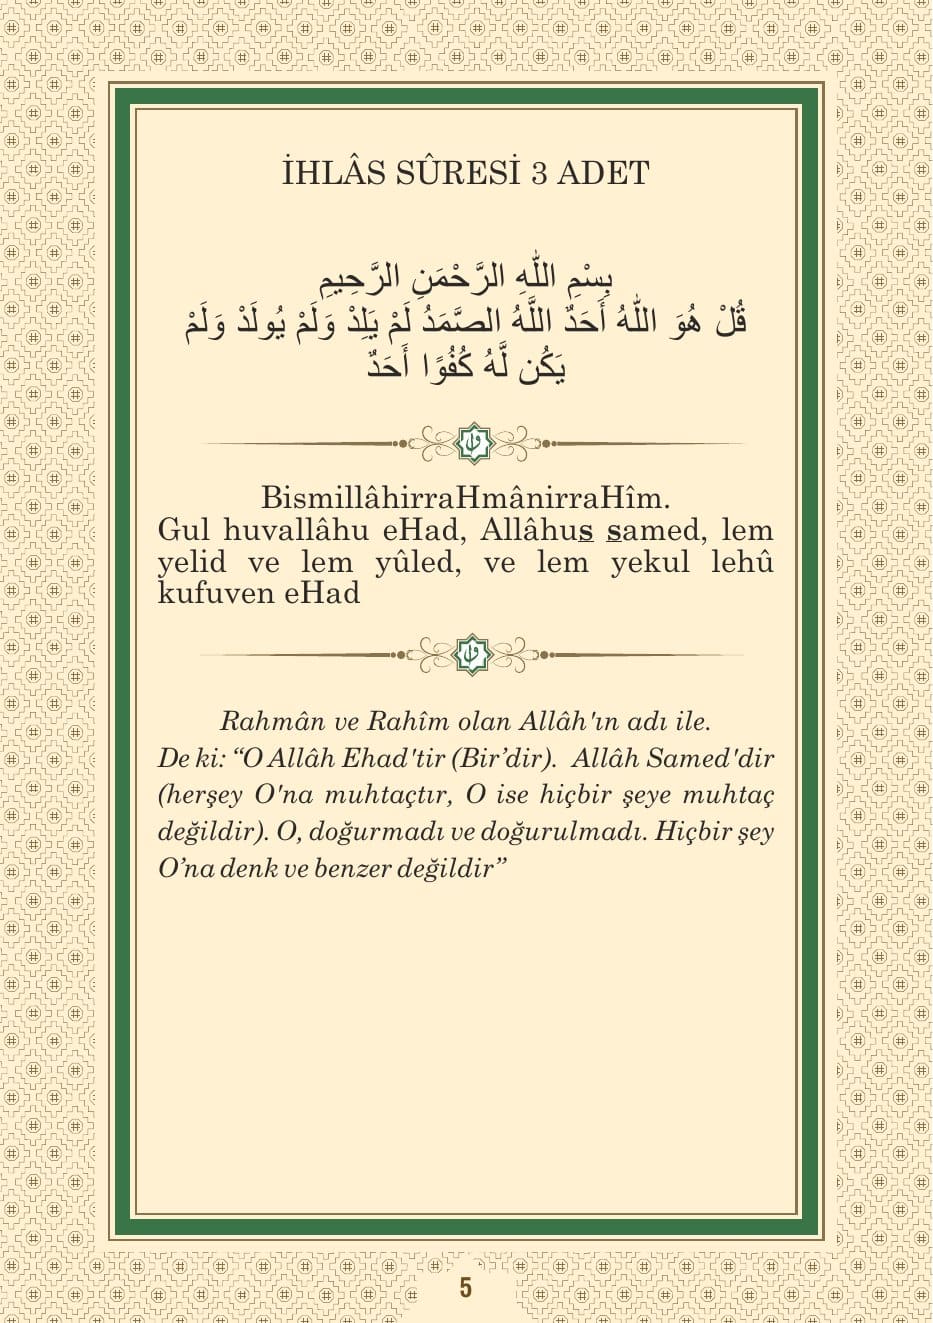 İHLÂS SÛRESİ 3 ADET
بِسْمِ اللّٰهِ الرَّحْمَنِ الرَّحِيمِ
قُلْ هُوَ اللّٰهُ أَحَدٌ اللَّهُ الصَّمَدُ لَمْ يَلِدْ وَلَمْ يُولَدْ وَلَمْ
يَكُن لَّهُ كُفُوًا أَحَدٌ
BismillâhirraHmânirraHîm.
Gul huvallâhu eHad, Allâhus samed, lem
yelid ve lem yûled, ve lem yekul lehû
kufuven eHad
Rahmân ve Rahîm olan Allâh'ın adı ile.
De ki: “O Allâh Ehad'tir (Bir’dir). Allâh Samed'dir
(herşey O'na muhtaçtır, O ise hiçbir şeye muhtaç
değildir). O, doğurmadı ve doğurulmadı. Hiçbir şey
O’na denk ve benzer değildir”
5